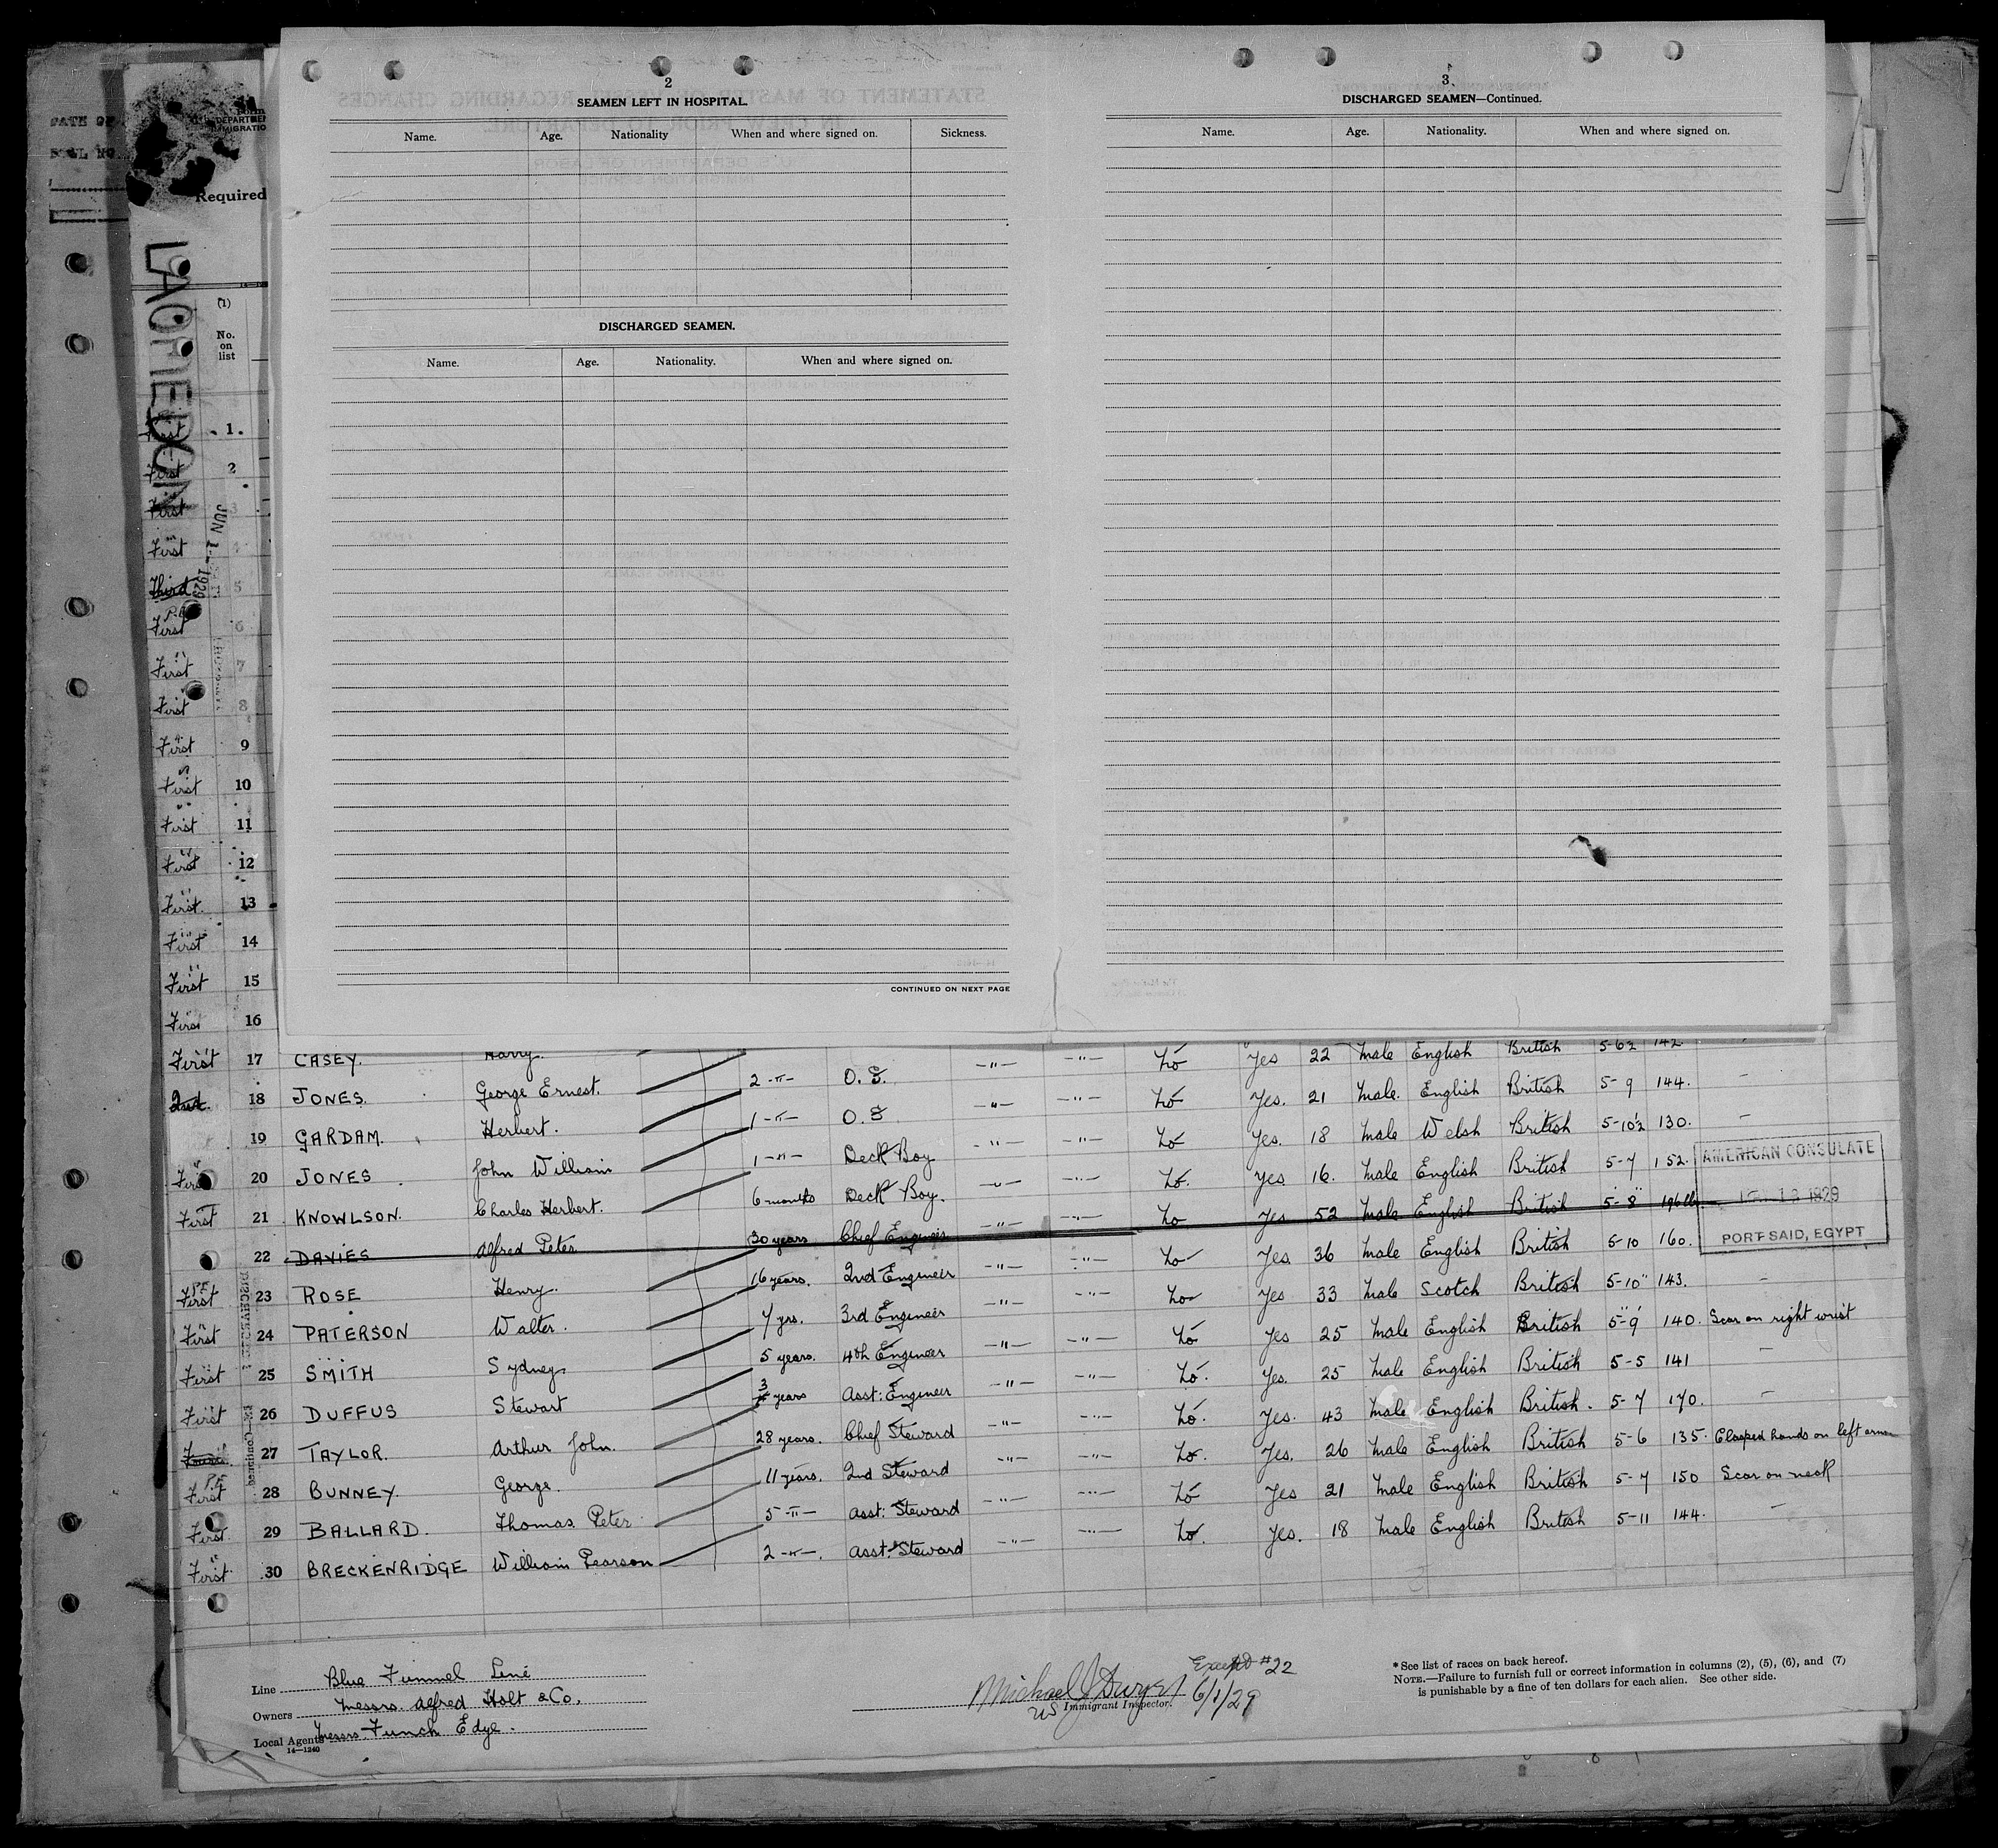 2
SEAMEN LEFT IN HOSPITAL.
Name. Age. Nationality When and where signed on. Sickness.
DISCHARGED SEAMEN.
Name. Age. Nationality. When and where signed on.
CONTINUED ON NEXT PAGE
3
DISCHARGED SEAMEN—Continued.
Name. Age. Nationality. When and where signed on.
Required
LAOMEDON
JUN 1 - 1929
(1)
No. on list
First 1
First 2
First 3
First 4
Third 5
First 6
First 7
First 8
First 9
First 10
First 11
First 12
First 13
First 14
First 15
First 16
First 17 CASEY. Harry. -"- -"- No Yes 22 Male English British 5-6½ 142 -
2nd. 18 JONES. George Ernest. 2 -"- O.S. -"- -"- No Yes. 21 Male. English British 5-9 144. -
19 GARDAM. Herbert. 1 -"- O.S -"- -"- No Yes. 18 Male Welsh British 5-10½ 130. -
First 20 JONES John William 1 -"- Deck Boy -"- -"- No. Yes 16. Male English British 5-7 152.
First 21 KNOWLSON. Charles Herbert. 6 months Deck Boy. -"- -"- No Yes 52 Male English British 5-8" 196 lb
22 DAVIES Alfred Peter 30 years Chief Engineer -"- -"- No Yes 36 Male English British 5-10 160.
First 23 ROSE Henry. 16 years. 2nd Engineer -"- -"- No Yes 33 Male Scotch British 5-10" 143. -
First 24 PATERSON Walter. 7 yrs. 3rd Engineer -"- -"- No Yes 25 Male English British 5-9 140. Scar on right wrist
First 25 SMITH Sydney 5 years. 4th Engineer -"- -"- No. Yes. 25 Male English British 5-5 141 -
First 26 DUFFUS Stewart 3 years Asst: Engineer -"- -"- No. Yes. 43 Male English British. 5-7 170. -
27 TAYLOR. Arthur John. 28 years. Chief Steward -"- -"- No. Yes. 26 Male English British 5-6 135. Clasped hands on left arm
P.E. First 28 BUNNEY. George. 11 years. 2nd Steward -"- -"- No Yes 21 Male English British 5-7 150 Scar on neck
First. 29 BALLARD. Thomas Peter 5 -"- Asst: Steward -"- -"- No. Yes. 18 Male English British 5-11 144. -
First 30 BRECKENRIDGE William Pearson 2 -"-. Asst: Steward -"-
AMERICAN CONSULATE
1929
PORT SAID, EGYPT
Line Blue Funnel Line
Owners Messrs. Alfred Holt & Co.
Local Agents Messrs Funch Edye.
14—1240
Except #22
Michael J Dwyer 6/1/29
US Immigrant Inspector.
* See list of races on back hereof.
NOTE.—Failure to furnish full or correct information in columns (2), (5), (6), and (7)
is punishable by a fine of ten dollars for each alien. See other side.